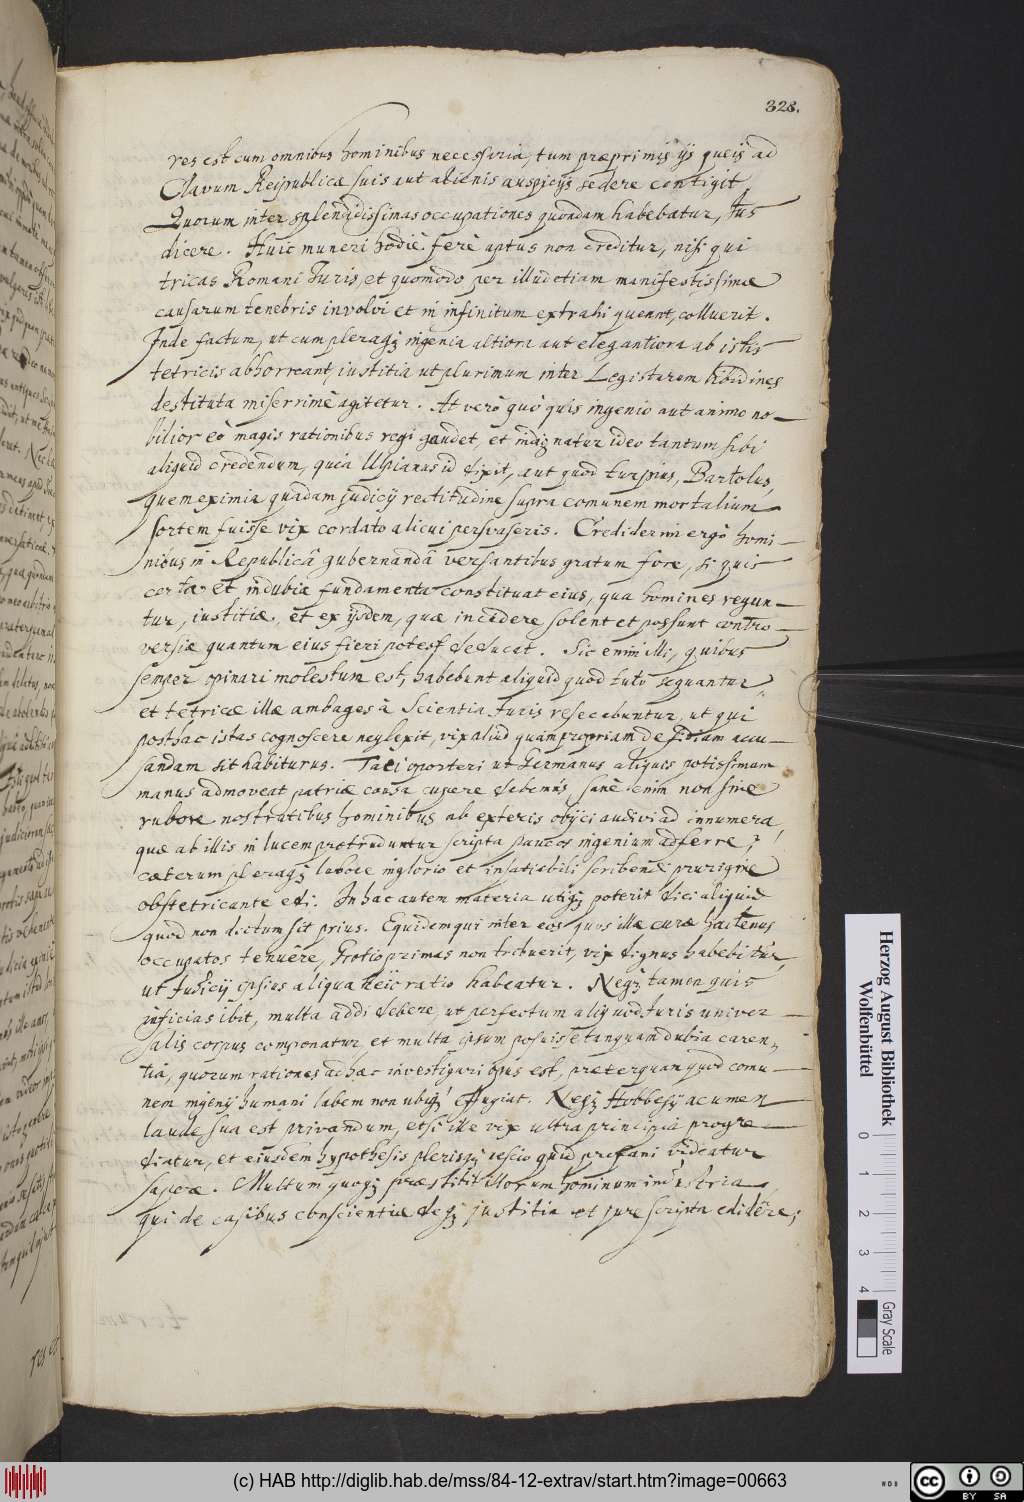 328.
res est cum omnibus hominibus necessaria, tum præprimis ijs queis ad
Clavum Reipublicæ suis aut alienis auspicijs sedere contigit.
Quorum inter splendidissimas occupationes quondam habebatur, Jus
dicere. Huic muneri hodiè ferè aptus non creditur, nisi qui
tricas Romani Juris, et quomodo per illud etiam manifestissimæ
causarum tenebris involvi et in infinitum extrahi queant, calluerit.
Inde factum, ut cum pleraq; ingenia altiora aut elegantiora ab istis
tetricis abhorreant, iustitia ut plurimum inter Legistarum libidines
destituta miserrimè agitetur. At verò quò quis ingenio aut animo no-
bilior eò magis rationibus regi gaudet, et indignatur ideo tantum sibi
aliquid credendum, quia Ulpianus id dixit, aut quod turpius, Bartolus,
quem eximia quadam judicij rectitudine supra comunem mortalium
sortem fuisse vix cordato alicui persvaseris. Crediderim ergò homi-
nibus in Republicâ gubernandâ versantibus gratum fore, si quis
certa et indubia fundamenta constituat eius, qua homines regun-
tur, iustitiæ, et ex ijsdem, quæ incidere solent et possunt contro-
versiæ quantum eius fieri potest deducat. Sic enim illi, quibus
semper opinari molestum est, habebunt aliquid quod tutò sequantur,
et tetricæ illæ ambages à Scientia Juris resecabuntur, ut qui
posthac istas cognoscere neglexit, vix aliud quàm propriam desidiam accu-
sandam sit habiturus. Taci oporteri ut Germanus aliquis potissimum
manus admoveat patriæ causa cupere debemus, sanè enim non sine
rubore nostratibus hominibus ab exteris objici audivi ad innumera,
quæ ab illis in lucem protruduntur scripta paucos ingenium adferre;
cæterum pleraq; labore inglorio et insatiabili scribendi prurigine
obstetricante edi. In hac autem materia utiq; poterit dici aliquid
quod non dictum sit prius. Equidem qui inter eos quos illæ curæ hactenus
occupatos tenuêre, Grotio primas non tribuerit, vix dignus habebitur,
ut judicij ipsius aliqua heic ratio habeatur. Neq; tamen quis
inficias ibit, multa addi debere, ut perfectum aliquod Juris univer-
salis corpus componatur, et multa ipsum posuisse tanquam dubia caren-
tia, quorum rationes adhac investigari opus est, præterquam quod comu-
nem ingenij humani labem non ubiq; effugiat. Neq; Hobbesij acumen
laude sua est privandum, etsi ille vix ultra principia progre-
diatur, et eiusdem hypothesis plerisq; nescio quid profani videatur
sapere. Multum quoq; præstitit illorum hominum industria
qui de casibus conscientiæ deq; justitia et jure scripta edidêre;
Herzog August Bibliothek
Wolfenbüttel
0 1 2 3 4
Gray Scale
(c) HAB http://diglib.hab.de/mss/84-12-extrav/start.htm?image=00663
cc BY SA